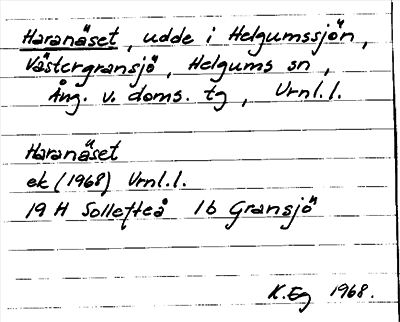 Haranäset, udde i Helgumssjön,
Västergransjö, Helgums sn,
Ång. v. doms. tg, Vrnl.l.
Haranäset
ek (1968) Vrnl.l.
19 H Sollefteå 1b Gransjö
K.Eg 1968.